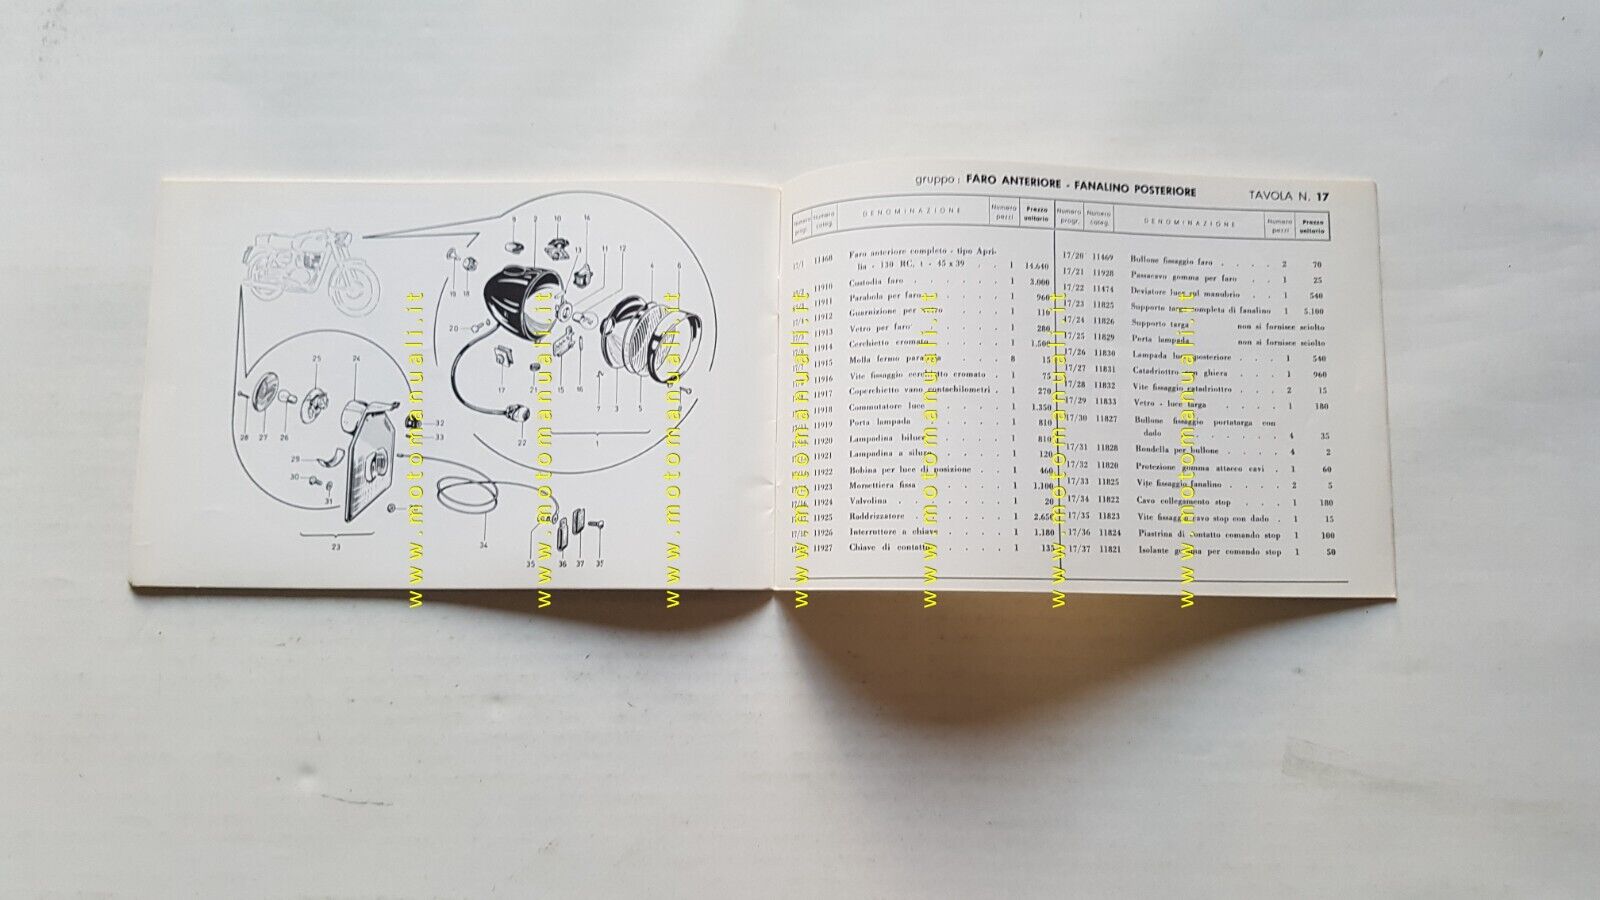 gruppo: FARO ANTERIORE - FANALINO POSTERIORE TAVOLA N. 17
Numero progr. Numero categ. DENOMINAZIONE Numero pezzi Prezzo unitario
17/1 11468 Faro anteriore completo - tipo Apri-
lia - 130 RC, t - 45 x 39 . . 1 14.640
11910 Custodia faro 1 3.000
11911 Parabola per faro 1 960
11912 Guarnizione per 1 110
11913 Vetro per faro 1 280
11914 Cerchietto cromato 1 1.500
11915 Molla fermo 8 15
11916 Vite fissaggio cerchietto cromato . 1 75
11917 Coperchietto vano contachilometri . 1 270
11918 Commutatore luce 1 1.350
11919 Porta lampada 1 810
11920 Lampadina biluce 1 810
11921 Lampadina a siluro 1 120
11922 Bobina per luce di posizione . . 1 460
11923 Morsettiera fissa 1 1.100
11924 Valvolina 1 20
11925 Raddrizzatore 1 2.650
11926 Interruttore a chiave 1 1.180
11927 Chiave di contatto 1 135
Numero progr. Numero categ. DENOMINAZIONE Numero pezzi Prezzo unitario
17/20 11469 Bullone fissaggio faro . . . . 2 70
17/21 11928 Passacavo gomma per faro . . 1 25
17/22 11474 Deviatore luce sul manubrio . . 1 540
17/23 11825 Supporto targa completa di fanalino 1 5.100
17/24 11826 Supporto targa non si fornisce sciolto
17/25 11829 Porta lampada non si fornisce sciolto
17/26 11830 Lampada luce posteriore . . . 1 540
17/27 11831 Catadriottro con ghiera . . . 1 960
17/28 11832 Vite fissaggio catadriottro . . 2 15
17/29 11833 Vetro - luce targa . . . . . 1 180
17/30 11827 Bullone fissaggio portatarga con
dado . . . . . . . 4 35
17/31 11828 Rondella per bullone . . . . 4 2
17/32 11820 Protezione gomma attacco cavi . 1 60
17/33 11825 Vite fissaggio fanalino . . . . 2 5
17/34 11822 Cavo collegamento stop . . . 1 180
17/35 11823 Vite fissaggio cavo stop con dado . 1 15
17/36 11824 Piastrina di contatto comando stop 1 100
17/37 11821 Isolante gomma per comando stop 1 50
9 2 10 16
13 11 12
4 6
19 18
20
17 21 15 16
7 3 5 8
22
1
25 24
28 27 26
32
33
29
30
31
23
34
35 36 37 35
www.motomanuali.it
www.motomanuali.it
www.motomanuali.it
www.motomanuali.it
www.motomanuali.it
www.motomanuali.it
www.motomanuali.it